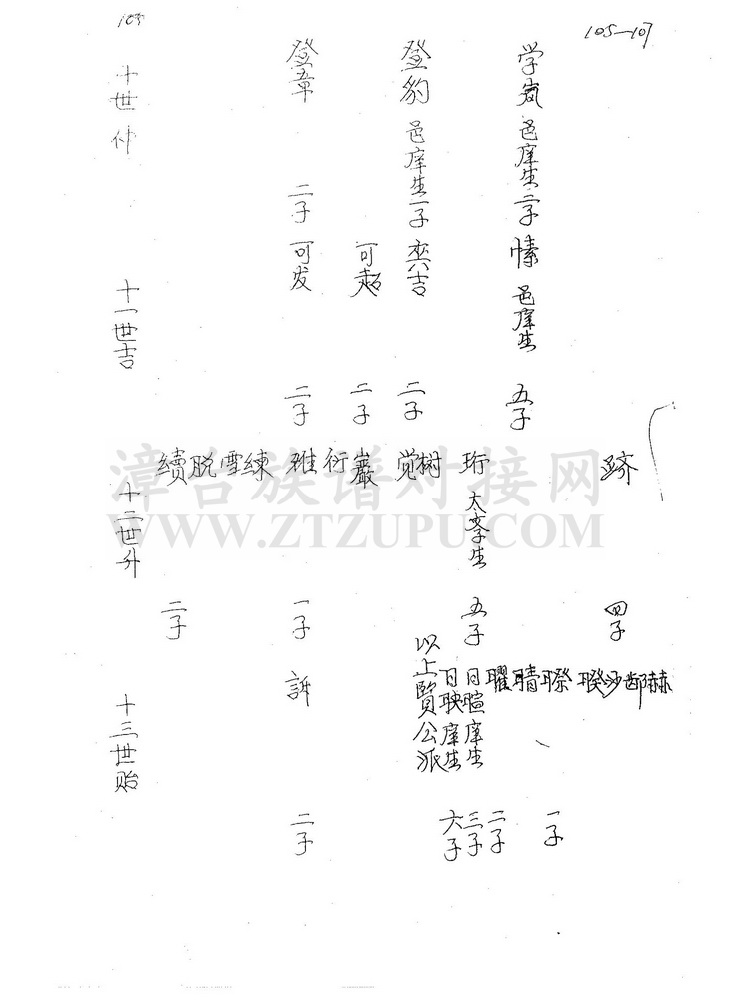 105—107
103
学岚 邑庠生 二子
愫 邑庠生
五子
跻
四子
赫
郜
一子
晴
二子
曜
三子
珩 太学生
五子
日暄 庠生
日映 庠生
六子
以上贤公派
登豹 邑庠生 一子
夾吉
二子
树
觉
可超
二子
巖
衍
登章
二子
可发
二子
雅
一子
訴
二子
练
雪
脱
续
二子
十世仲
十一世吉
十二世升
十三世贻
漳台族谱对接网
WWW.ZTZUPU.COM